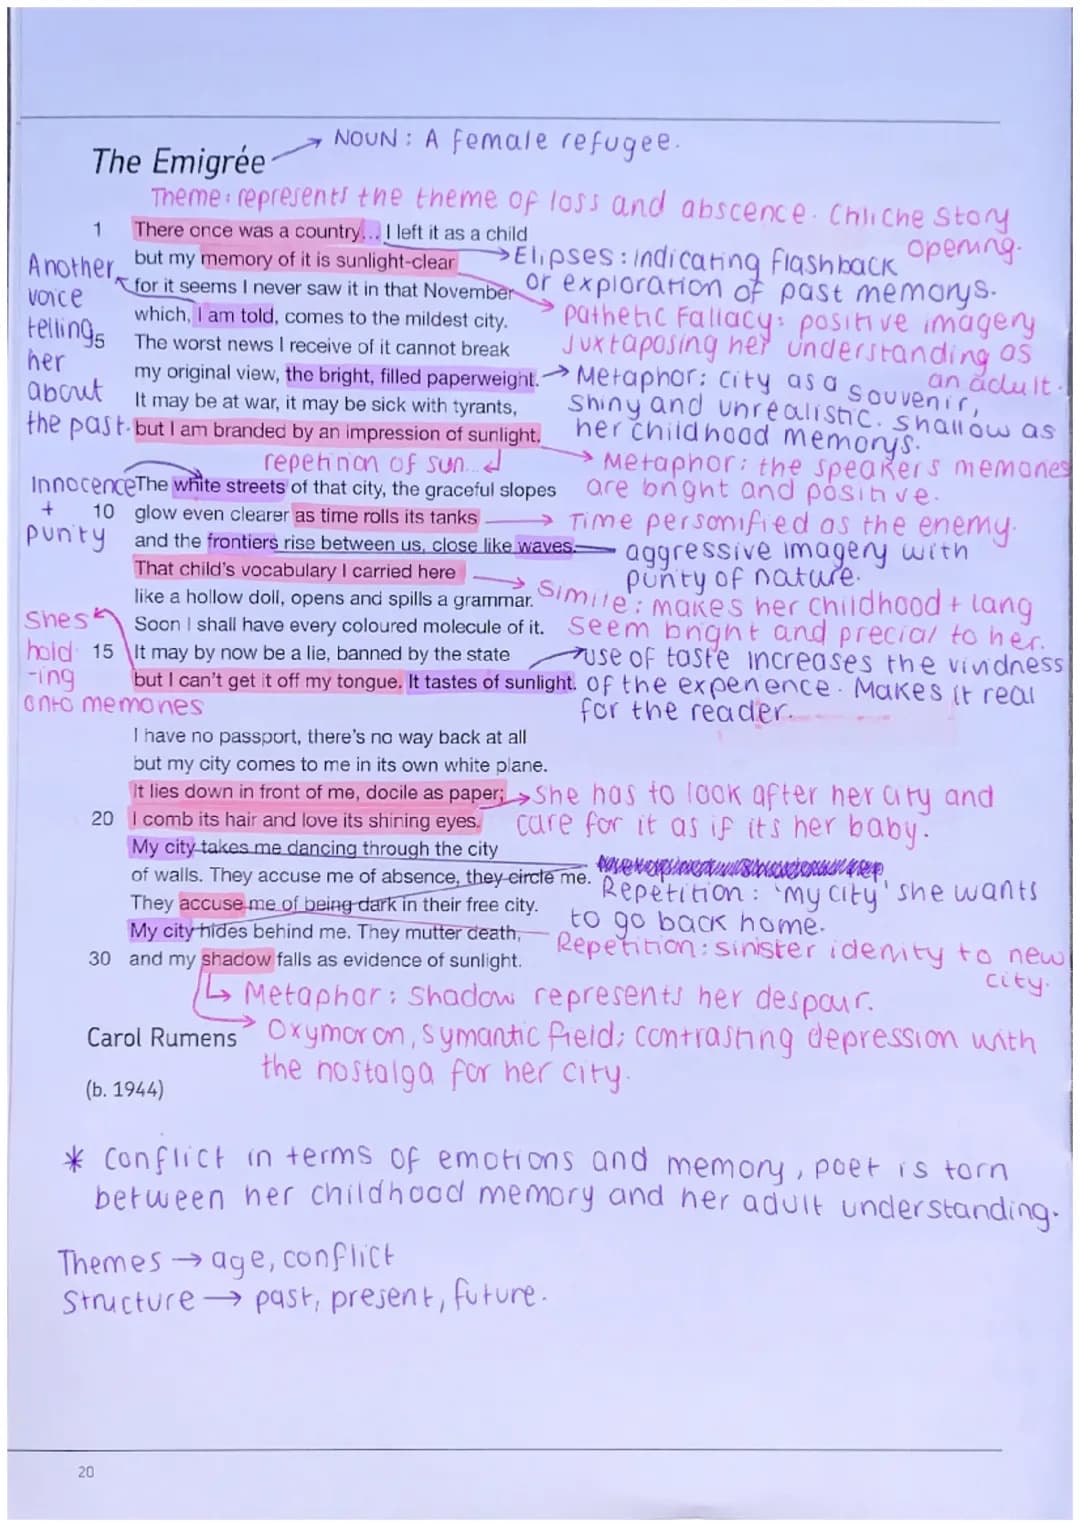 The Emigrée → NOUN: A female refugee.
Theme: represents the theme of loss and abscence. Chliche Story opening.
1 There once was a country... I left it as a child
but my memory of it is sunlight-clear
for it seems I never saw it in that November
which, I am told, comes to the mildest city.
5 The worst news I receive of it cannot break
my original view, the bright, filled paperweight.
It may be at war, it may be sick with tyrants,
but I am branded by an impression of sunlight.
Another
voice
telling
her
about
the past.
→ Elipses: indicating flashback
or exploration of past memorys.
pathetic Fallacy: positive imagery
Juxtaposing her understanding as
an adult.
→ Metaphor: city as a souvenir,
shiny and unrealistic. shallow as
her childhood memorys.
repetition of sun...
→ Metaphor: the speakers memories
are bright and positive.
The white streets of that city, the graceful slopes
10 glow even clearer as time rolls its tanks
and the frontiers rise between us, close like waves.
That child's vocabulary I carried here
like a hollow doll, opens and spills a grammar.
Soon I shall have every coloured molecule of it.
15 It may by now be a lie, banned by the state
but I can't get it off my tongue. It tastes of sunlight.
Innocence
+
purity
→ Time personified as the enemy.
aggressive imagery with
purity of nature.
→ Simile: makes her childhood + lang
seem bright and precial to her.
use of taste increases the vividness
of the experience. Makes it real
for the reader.
Shes
hold
-ing
onto memories
I have no passport, there's no way back at all
but my city comes to me in its own white plane.
It lies down in front of me, docile as paper;
20 I comb its hair and love its shining eyes.
My city takes me dancing through the city
of walls. They accuse me of absence, they circle me.
They accuse me of being dark in their free city.
My city hides behind me. They mutter death,
30 and my shadow falls as evidence of sunlight.
→ She has to look after her city and
care for it as if its her baby.
Repetition: 'my city' she wants
to go back home.
Repetition: sinister idenity to new
city.
↳ Metaphor: Shadow represents her despair.
→ Oxymoron, symantic field; contrasting depression with
the nostalga for her city.
Carol Rumens
(b. 1944)
* Conflict in terms of emotions and memory, poet is torn
between her childhood memory and her adult understanding.
Themes → age, conflict
Structure → past, present, future.
20